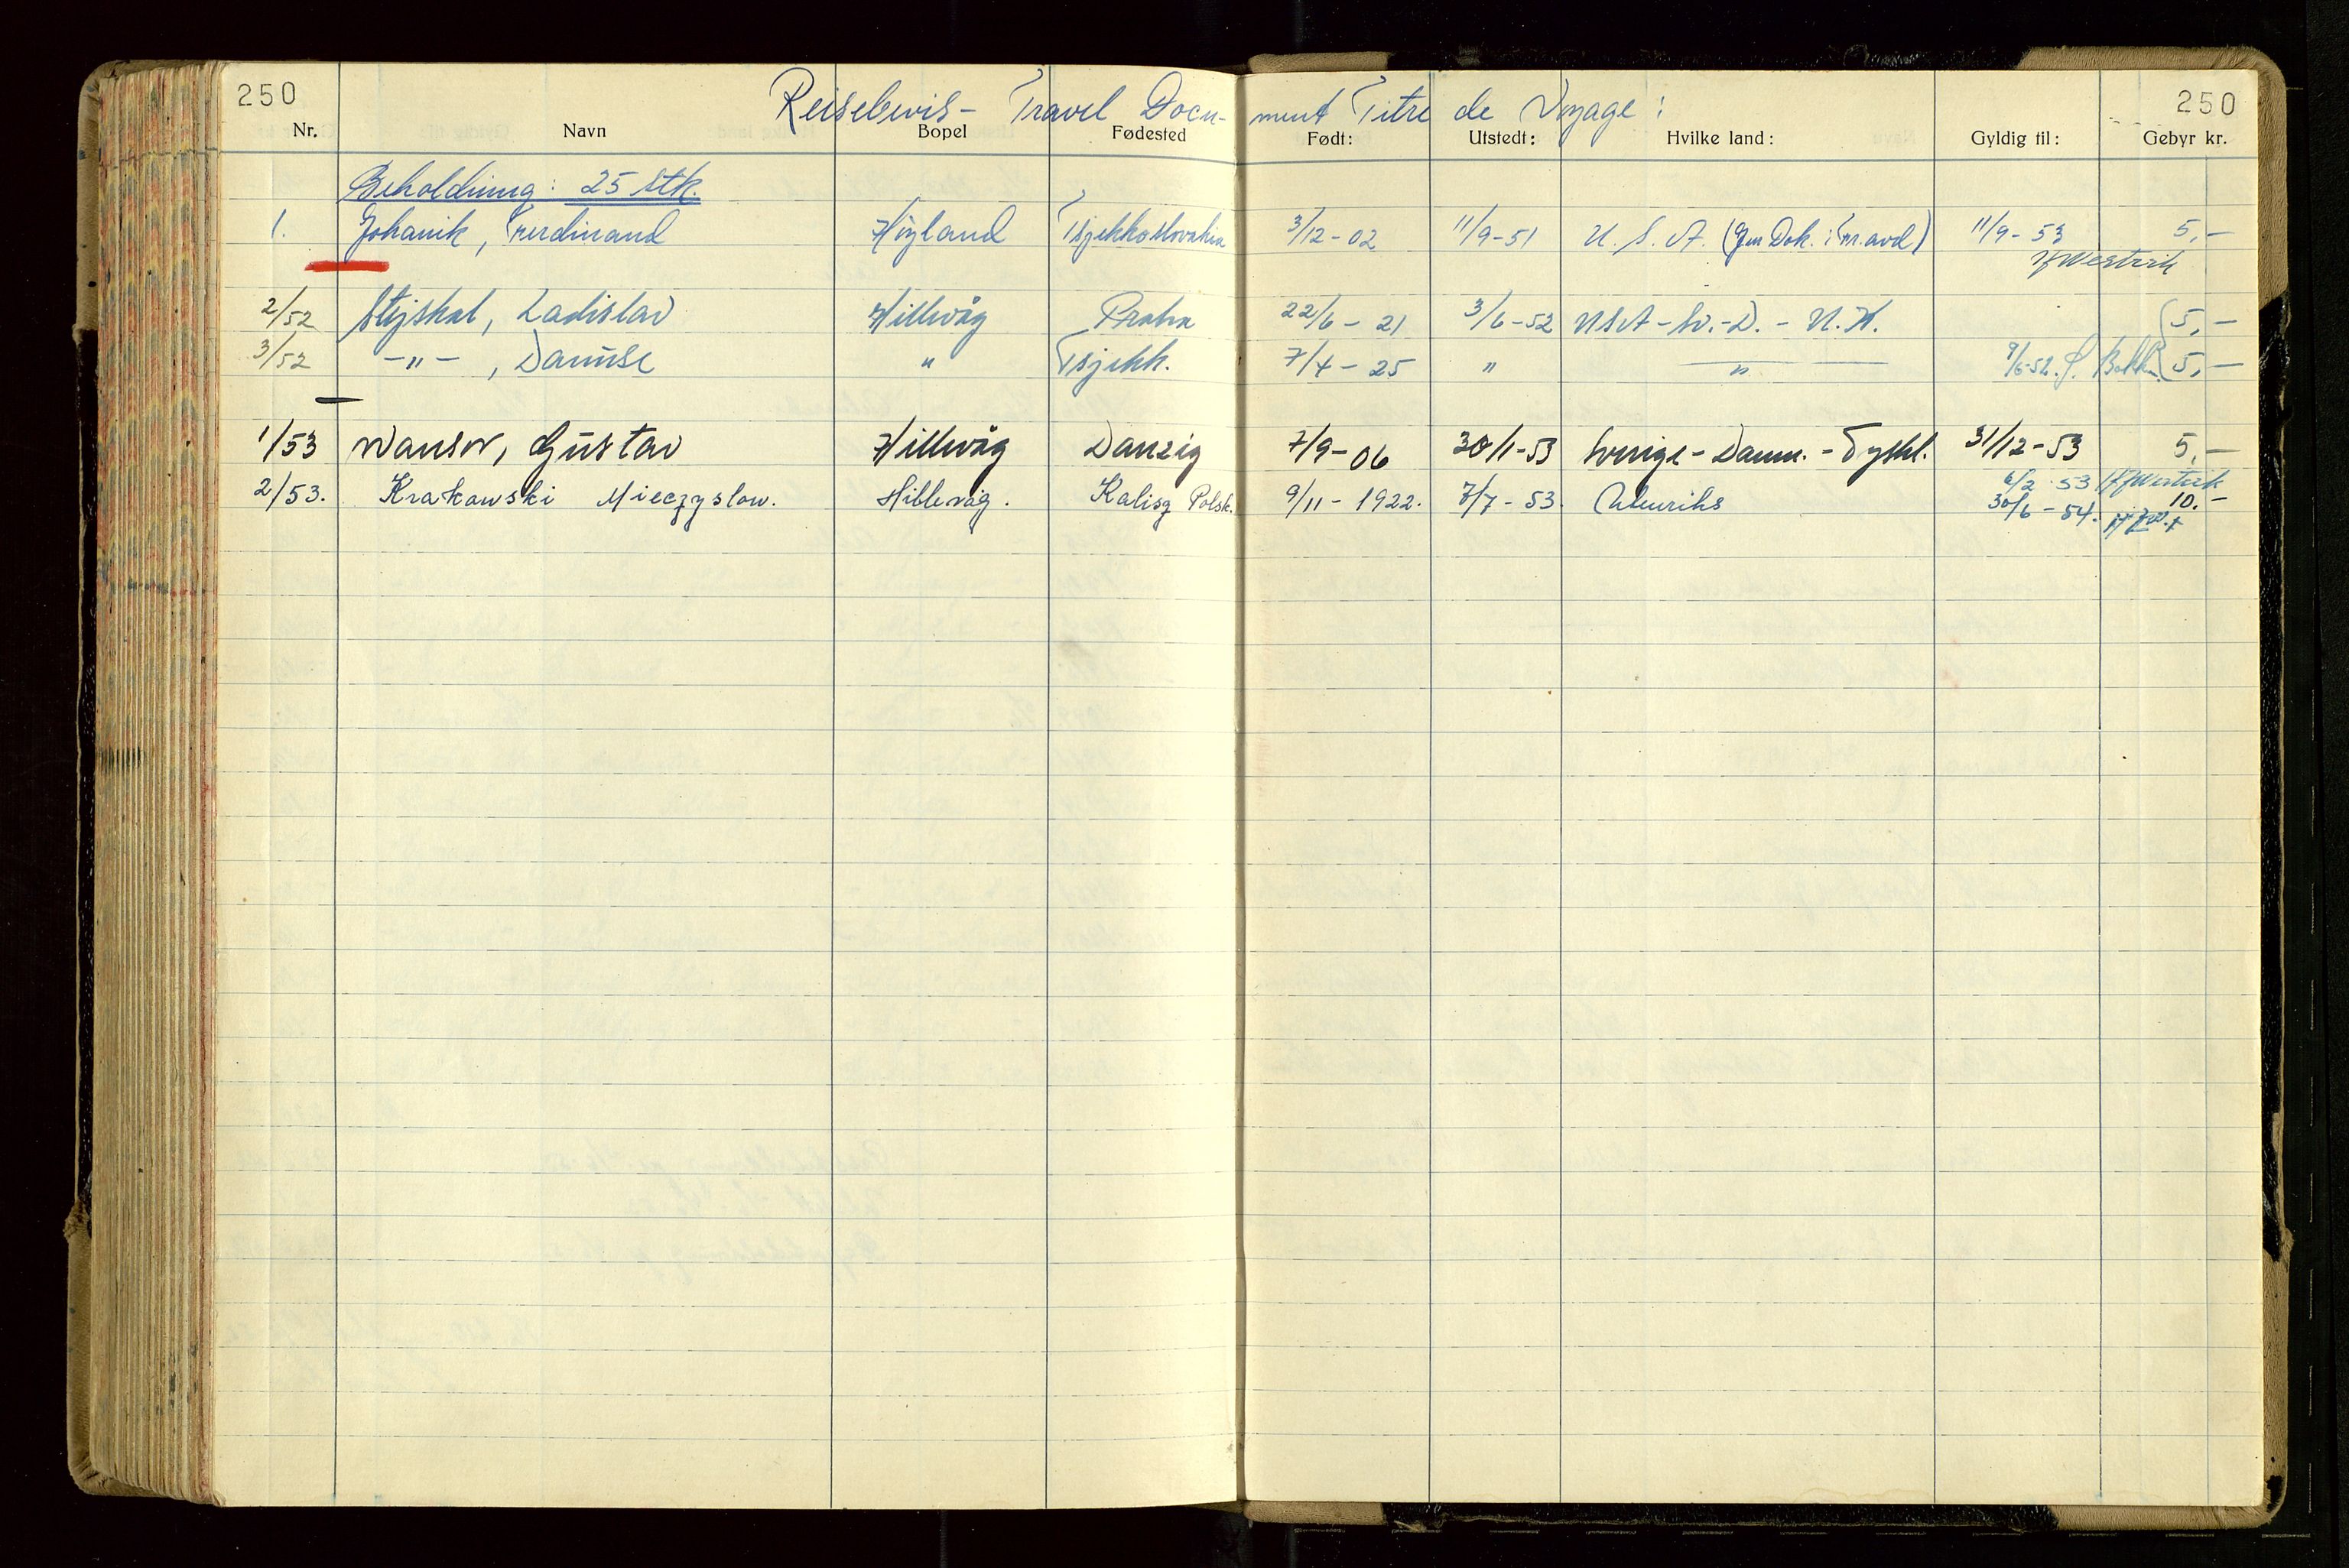 250 Reisebevis - Travel Docu- ment Titre de Voyage: 250
Nr. Navn Bopel Fødested Født: Utstedt: Hvilke land: Gyldig til: Gebyr kr.
Beholdning: 25 stk.
1. Johanik, Ferdinand Høyland Tsjekkoslovakia 3/12-02 11/9-51 U.S.A. 11/9-53 5,-
2/52 Stejskal, Ladislav Hillevåg Praha 22/6-21 3/6-52 USA-Sv.-D.-U.K. 5,-
3/52 -"-, Danuse " Tsjekk. 7/4-25 " " 9/6-52. 5,-
1/53 Gustav Hillevåg Danzig 7/9-06 30/1-53 Sverige-Danm.-Tyskl. 31/12-53 5,-
6/2 53
2/53. Krakowski Mieczyslow. Hillevåg. Kalisz Polsk. 9/11-1922. 7/7-53. 30/6-54. 10.-